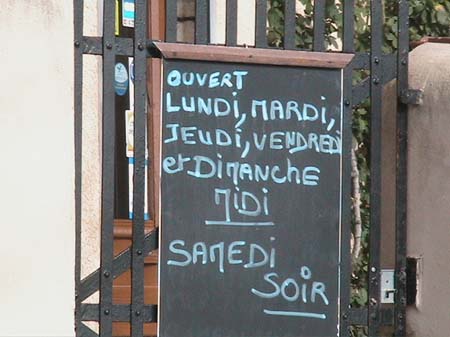 OUVERT
LUNDI, MARDI,
JEUDI, VENDREDI
et DIMANCHE
MIDI
SAMEDI
SOIR